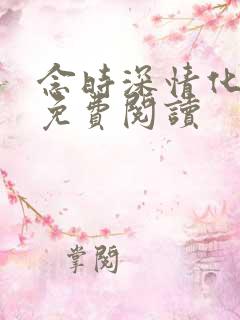 念時深情化
免費閱讀
掌閱